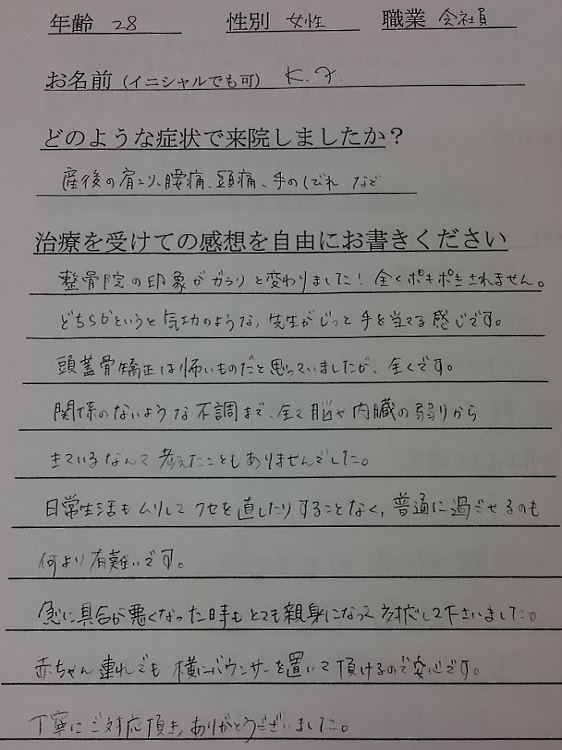 年齢 28 性別 女性 職業 会社員
お名前(イニシャルでも可) K.F.
どのような症状で来院しましたか?
産後の肩こり、腰痛、頭痛、手のしびれ など
治療を受けての感想を自由にお書きください
整骨院の印象がガラリと変わりました!全くポキポキされません。
どちらかというと気功のような、先生がじっと手を当てる感じです。
頭蓋骨矯正は怖いものだと思っていましたが、全くです。
関係のないような不調まで、全て脳や内臓の弱りから
きているなんて考えたこともありませんでした。
日常生活もムリしてクセを直したりすることなく、普通に過ごせるのも
何より有難いです。
急に具合が悪くなった時もとても親身になって対応して下さいました。
赤ちゃん連れでも横にバウンサーを置いて頂けるので安心です。
丁寧にご対応頂き、ありがとうございました。